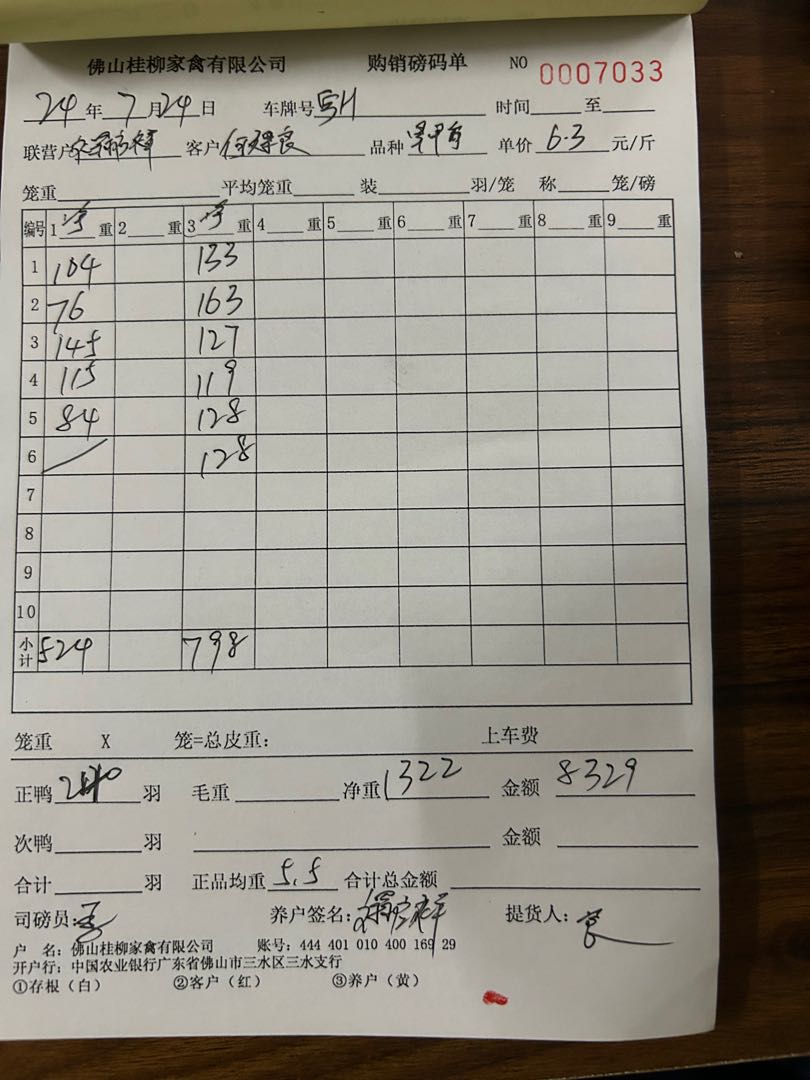 佛山桂柳家禽有限公司 购销磅码单 NO 0007033
24年7月24日 车牌号 时间 至
联营户 客户 品种 单价6.3元/斤
笼重 平均笼重 装 羽/笼 称 笼/磅
编号 1 重 2 重 3 重 4 重 5 重 6 重 7 重 8 重 9 重
1 104 133
2 76 163
3 145 127
4 115 119
5 84 128
6 128
7
8
9
10
小计 524 798
笼重 X 笼=总皮重: 上车费
正鸭 羽 毛重 净重1322 金额8329
次鸭 羽 金额
合计 羽 正品均重5.5 合计总金额
司磅员: 养户签名: 提货人:
户 名: 佛山桂柳家禽有限公司 账号: 444 401 010 400 169 29
开户行: 中国农业银行广东省佛山市三水区三水支行
①存根(白) ②客户(红) ③养户(黄)